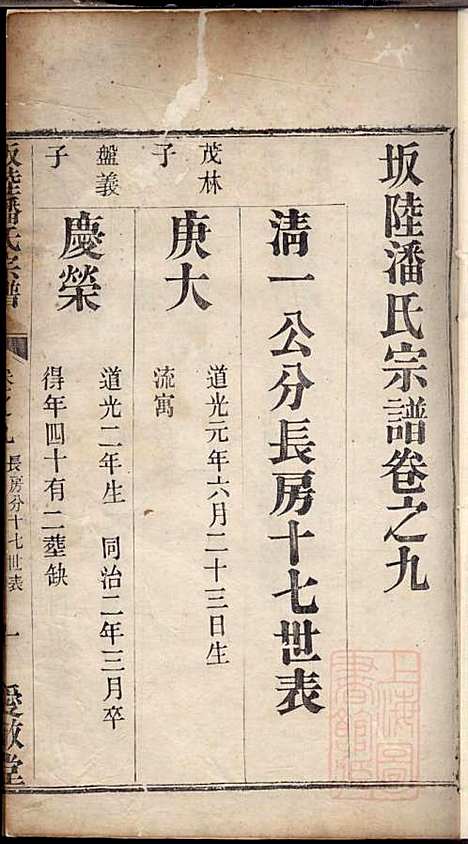 坂陸潘氏宗譜卷之九
清一公分長房十七世表
茂林
子
庚大
道光元年六月二十三日生
流寓
盤義
子
慶榮
道光二年生 同治二年三月卒
得年四十有二塟缺
坂陸潘氏宗譜
卷之九
長房分十七世表
一
愛敬堂
上海圖書館藏